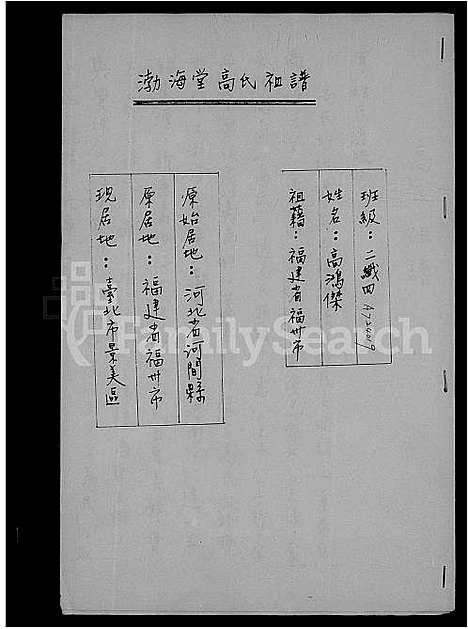 渤海堂高氏祖譜
班級：二纖四 A724019
姓名：高鴻傑
祖籍：福建省福州市
原始居地：河北省河間縣
原居地：福建省福州市
現居地：臺北市景美區
FamilySearch